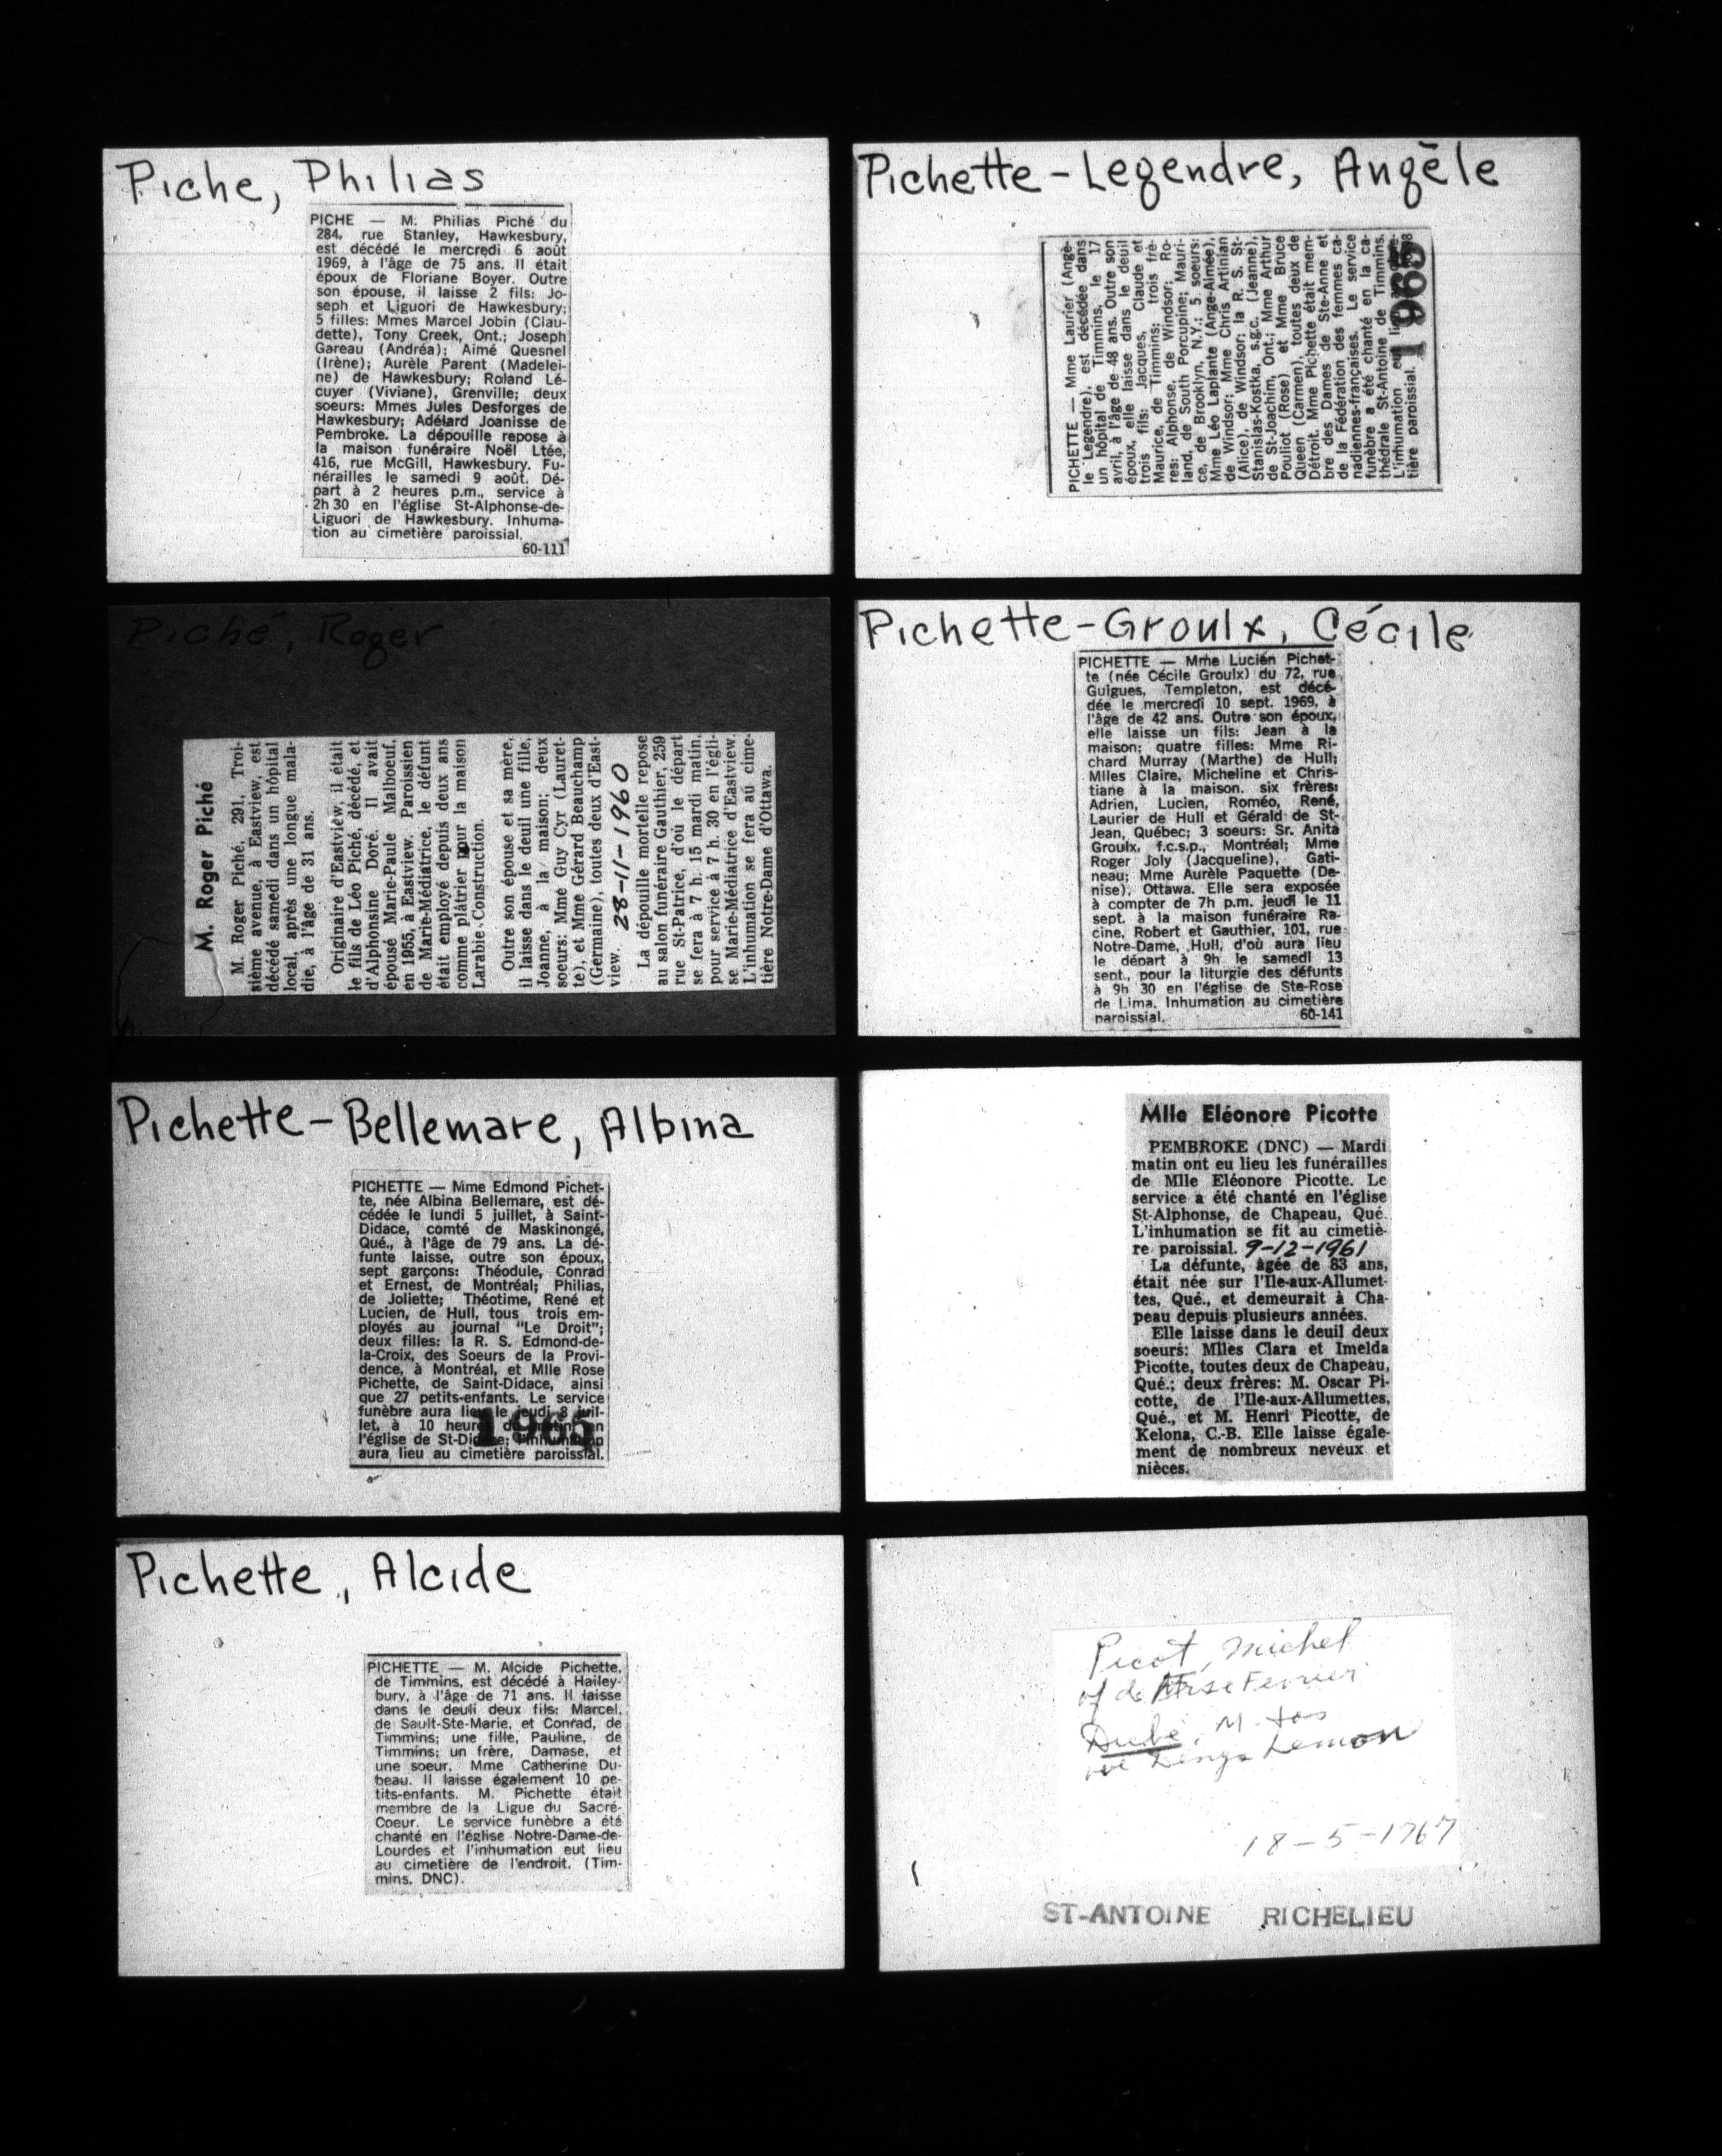 Piche, Philias
PICHE — M. Philias Piché du
284, rue Stanley, Hawkesbury,
est décédé le mercredi 6 août
1969, à l'âge de 75 ans. Il était
époux de Floriane Boyer. Outre
son épouse, il laisse 2 fils: Jo-
seph et Liguori de Hawkesbury;
5 filles: Mmes Marcel Jobin (Clau-
dette), Tony Creek, Ont.; Joseph
Gareau (Andréa); Aimé Quesnel
(Irène); Aurèle Parent (Madelei-
ne) de Hawkesbury; Roland Lé-
cuyer (Viviane), Grenville; deux
soeurs: Mmes Jules Desforges de
Hawkesbury; Adélard Joanisse de
Pembroke. La dépouille repose à
la maison funéraire Noël Ltée,
416, rue McGill, Hawkesbury. Fu-
nérailles le samedi 9 août. Dé-
part à 2 heures p.m., service à
2h 30 en l'église St-Alphonse-de-
Liguori de Hawkesbury. Inhuma-
tion au cimetière paroissial.
60-111
Pichette-Legendre, Angèle
PICHETTE — Mme Laurier (Angè-
le Legendre), est décédée dans
un hôpital de Timmins, le 17
avril, à l'âge de 48 ans. Outre son
époux, elle laisse dans le deuil
trois fils: Jacques, Claude et
Maurice, de Timmins; trois frè-
res: Alphonse, de Windsor; Ro-
land, de South Porcupine; Mauri-
ce, de Brooklyn, N.Y.; 5 soeurs:
Mme Léo Laplante (Ange-Aimée),
de Windsor; Mme Chris Artinian
(Alice), de Windsor; la R. S. St-
Stanislas-Kostka, s.g.c. (Jeanne),
de St-Joachim, Ont.; Mme Arthur
Pouliot (Rose) et Mme Bruce
Queen (Carmen), toutes deux de
Détroit. Mme Pichette était mem-
bre des Dames de Ste-Anne et
de la Fédération des femmes ca-
nadiennes-françaises. Le service
funèbre a été chanté en la ca-
thédrale St-Antoine de Timmins.
L'inhumation eut lieu au cime-
tière paroissial.
Piché, Roger
M. Roger Piché
M. Roger Piché, 291, Troi-
sième avenue, à Eastview, est
décédé samedi dans un hôpital
local, après une longue mala-
die, à l'âge de 31 ans.
Originaire d'Eastview, il était
le fils de Léo Piché, décédé, et
d'Alphonsine Doré. Il avait
épousé Marie-Paule Malboeuf,
en 1955, à Eastview. Paroissien
de Marie-Médiatrice, le défunt
était employé depuis deux ans
comme plâtrier pour la maison
Larabie Construction.
Outre son épouse et sa mère,
il laisse dans le deuil une fille,
Joanne, à la maison; deux
soeurs: Mme Guy Cyr (Lauret-
te), et Mme Gérard Beauchamp
(Germaine), toutes deux d'East-
view. 28-11-1960
La dépouille mortelle repose
au salon funéraire Gauthier, 259
rue St-Patrice, d'où le départ
se fera à 7 h. 15 mardi matin,
pour service à 7 h. 30 en l'égli-
se Marie-Médiatrice d'Eastview.
L'inhumation se fera au cime-
tière Notre-Dame d'Ottawa.
Pichette-Groulx, Cécile
PICHETTE — Mme Lucien Pichet-
te (née Cécile Groulx) du 72, rue
Guigues, Templeton, est décé-
dée le mercredi 10 sept. 1969, à
l'âge de 42 ans. Outre son époux,
elle laisse un fils: Jean à la
maison; quatre filles: Mme Ri-
chard Murray (Marthe) de Hull;
Mlles Claire, Micheline et Chris-
tiane à la maison. six frères:
Adrien, Lucien, Roméo, René,
Laurier de Hull et Gérald de St-
Jean, Québec; 3 soeurs: Sr. Anita
Groulx, f.c.s.p., Montréal; Mme
Roger Joly (Jacqueline), Gati-
neau; Mme Aurèle Paquette (De-
nise), Ottawa. Elle sera exposée
à compter de 7h p.m. jeudi le 11
sept. à la maison funéraire Ra-
cine, Robert et Gauthier, 101, rue
Notre-Dame, Hull, d'où aura lieu
le départ à 9h le samedi 13
sept., pour la liturgie des défunts
à 9h 30 en l'église de Ste-Rose
de Lima. Inhumation au cimetière
paroissial. 60-141
Pichette-Bellemare, Albina
PICHETTE — Mme Edmond Pichet-
te, née Albina Bellemare, est dé-
cédée le lundi 5 juillet, à Saint-
Didace, comté de Maskinongé,
Qué., à l'âge de 79 ans. La dé-
funte laisse, outre son époux,
sept garçons: Théodule, Conrad
et Ernest, de Montréal; Philias,
de Joliette; Théotime, René et
Lucien, de Hull, tous trois em-
ployés au journal "Le Droit";
deux filles: la R. S. Edmond-de-
la-Croix, des Soeurs de la Provi-
dence, à Montréal, et Mlle Rose
Pichette, de Saint-Didace, ainsi
que 27 petits-enfants. Le service
funèbre aura lieu le jeudi 8 juil-
let, à 10 heures du matin, en
l'église de St-Didace; l'inhumation
aura lieu au cimetière paroissial.
1965
Mlle Eléonore Picotte
PEMBROKE (DNC) — Mardi
matin ont eu lieu les funérailles
de Mlle Eléonore Picotte. Le
service a été chanté en l'église
St-Alphonse, de Chapeau, Qué.
L'inhumation se fit au cimetiè-
re paroissial. 9-12-1961
La défunte, âgée de 83 ans,
était née sur l'Ile-aux-Allumet-
tes, Qué., et demeurait à Cha-
peau depuis plusieurs années.
Elle laisse dans le deuil deux
soeurs: Mlles Clara et Imelda
Picotte, toutes deux de Chapeau,
Qué.; deux frères: M. Oscar Pi-
cotte, de l'Ile-aux-Allumettes,
Qué., et M. Henri Picotte, de
Kelona, C.-B. Elle laisse égale-
ment de nombreux neveux et
nièces.
Pichette, Alcide
PICHETTE — M. Alcide Pichette,
de Timmins, est décédé à Hailey-
bury, à l'âge de 71 ans. Il laisse
dans le deuil deux fils: Marcel,
de Sault-Ste-Marie, et Conrad, de
Timmins; une fille, Pauline, de
Timmins; un frère, Damase, et
une soeur, Mme Catherine Du-
beau. Il laisse également 10 pe-
tits-enfants. M. Pichette était
membre de la Ligue du Sacré-
Coeur. Le service funèbre a été
chanté en l'église Notre-Dame-de-
Lourdes et l'inhumation eut lieu
au cimetière de l'endroit. (Tim-
mins, DNC).
Picot, Michel
Dubé, M.
18-5-1767
ST-ANTOINE RICHELIEU